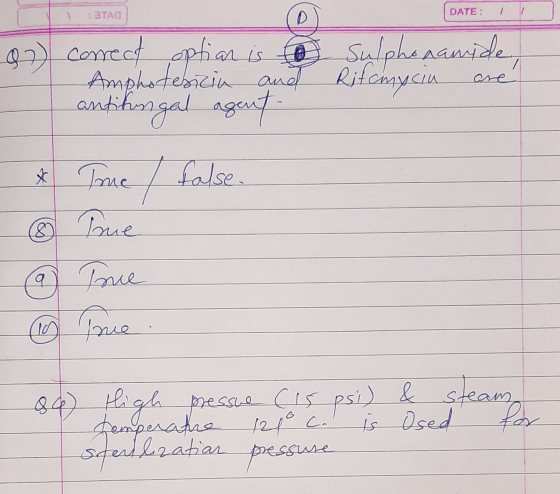 D
DATE: / /
Q7) correct option is Sulphonamide,
Amphotericin and Rifamycin are
antifungal agent.
* True / false.
8 True
9 True
10 True.
Q4) High pressue (15 psi) & steam
temperatue 121° C. is Used for
sterilization pressure